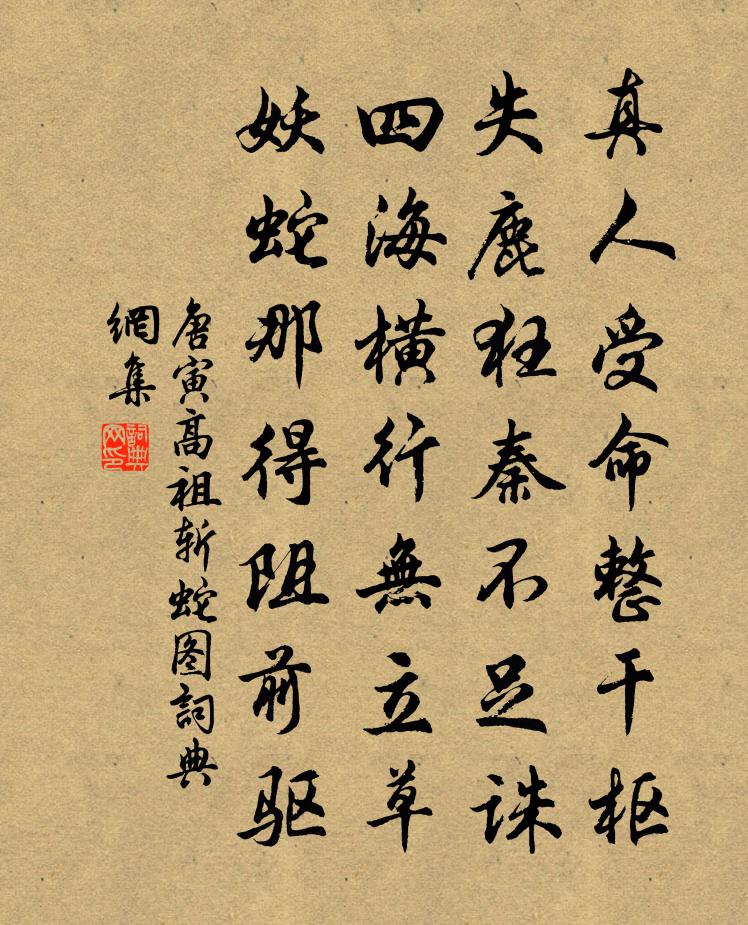 真人受命整干枢
失鹿狂秦不足诛
四海横行無立草
妖蛇那得阻前驱
唐寅高祖斩蛇图詞典
網集
詞典网印